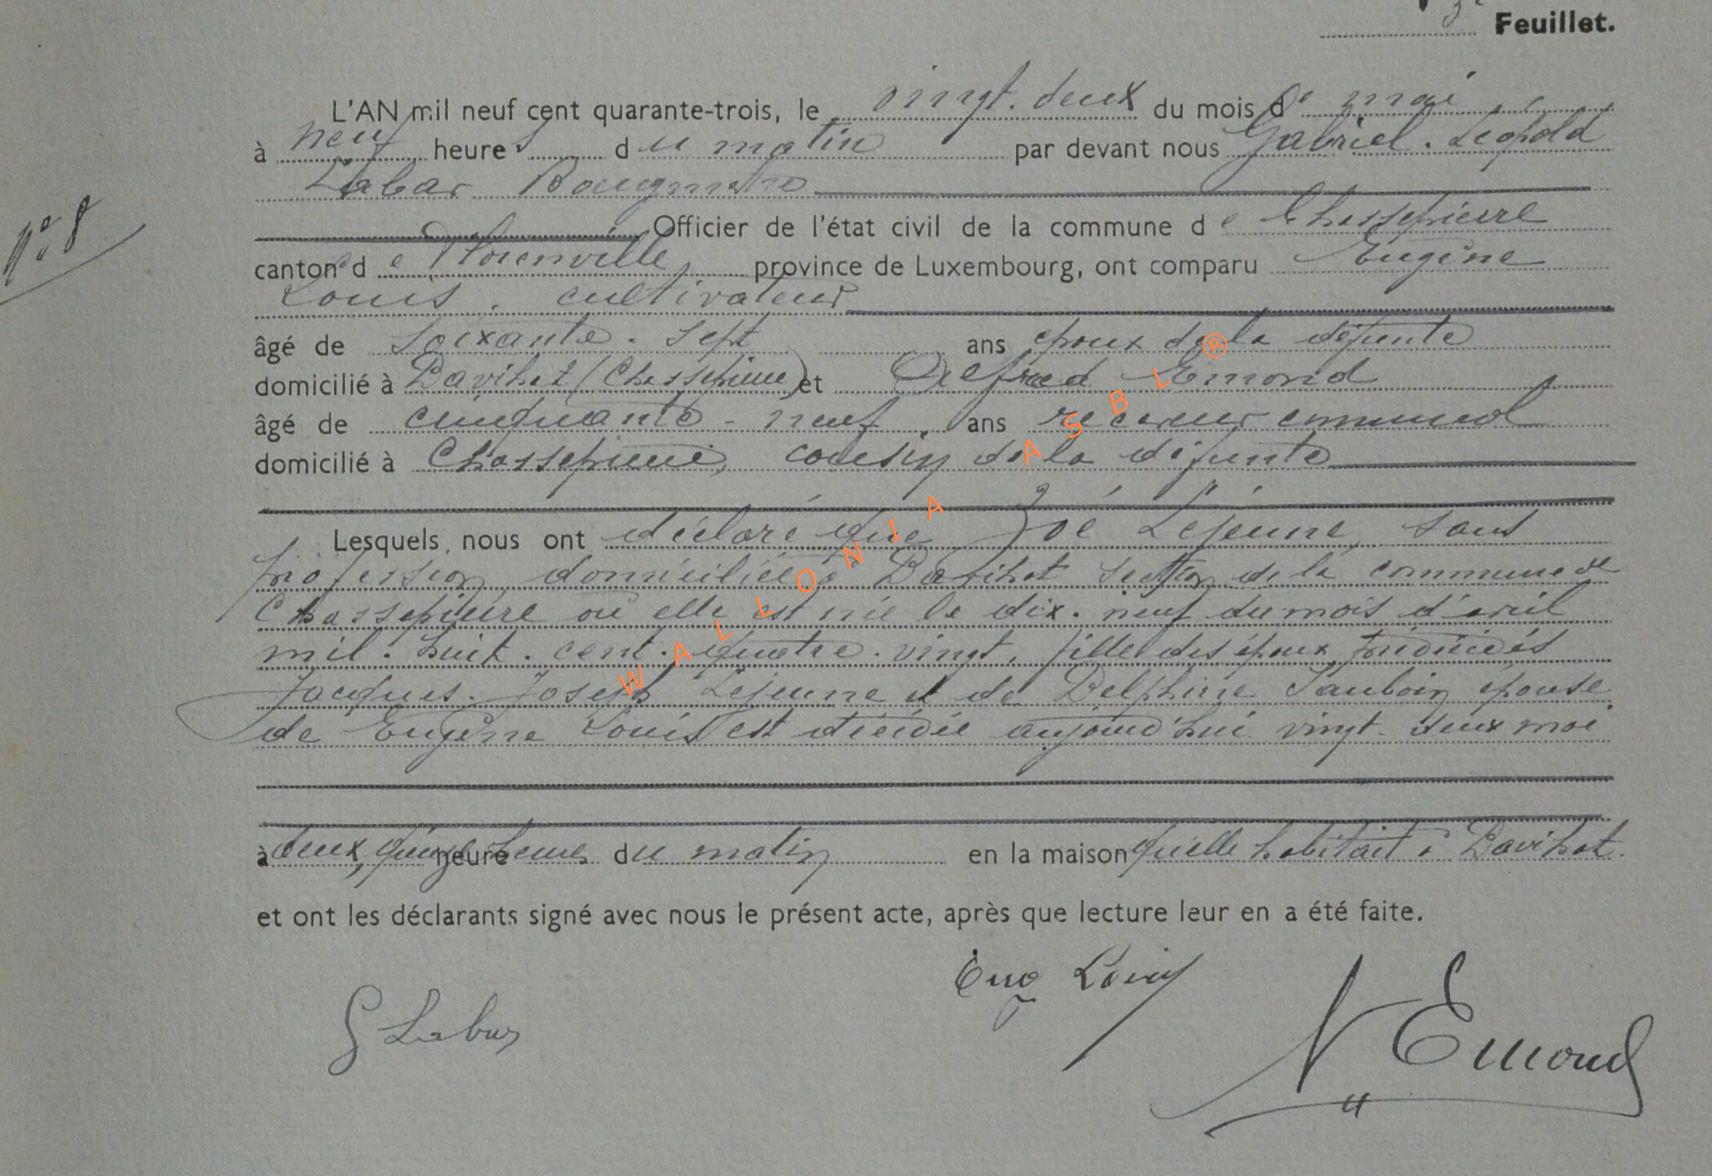 3e Feuillet.
L'AN mil neuf cent quarante-trois, le vingt-deux du mois de mai
à neuf heures du matin par devant nous Gabriel. Léopold
Labar Bourgmestre
N° 8
Officier de l'état civil de la commune de Chassepierre
canton de Florenville, province de Luxembourg, ont comparu Eugène
Louis, cultivateur
âgé de soixante-sept ans époux de la défunte
domicilié à (Chassepierre) et Alfred Emond
âgé de cinquante-neuf ans receveur communal
domicilié à Chassepierre, cousin de la défunte
Lesquels nous ont déclaré que Zoé Lejeune, sans
profession domiciliée à section de la commune de
Chassepierre où elle est née le dix-neuf du mois d'avril
mil-huit-cent-quatre-vingt, fille des époux prédécédés
Jacques-Joseph Lejeune et de Delphine épouse
de Eugène Louis est décédée aujourd'hui vingt-deux mai
à deux, quinze heure heures du matin en la maison qu'elle habitait à
et ont les déclarants signé avec nous le présent acte, après que lecture leur en a été faite.
Eug Louis
G Labar
Emond
WALLONIA ASBL ®